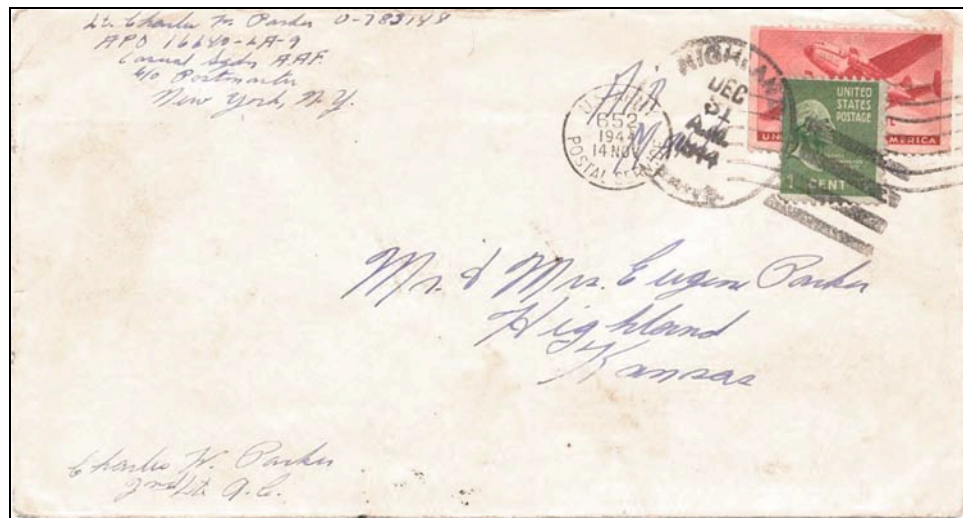 Lt. Charles W. Parker O-783148
APO 16640-LA-9
Casual Sqdn A.A.F.
c/o Postmaster
New York, N.Y.
Air
Mail
U.S. ARMY
652
1944
14 NOV
POSTAL SERVICE
HIGHLAND
DEC
31
A.M.
1944
UNITED
STATES
POSTAGE
1 CENT
UN
MERICA
Mr. & Mrs. Eugene Parker
Highland
Kansas
Charles W. Parker
2nd Lt. A.C.